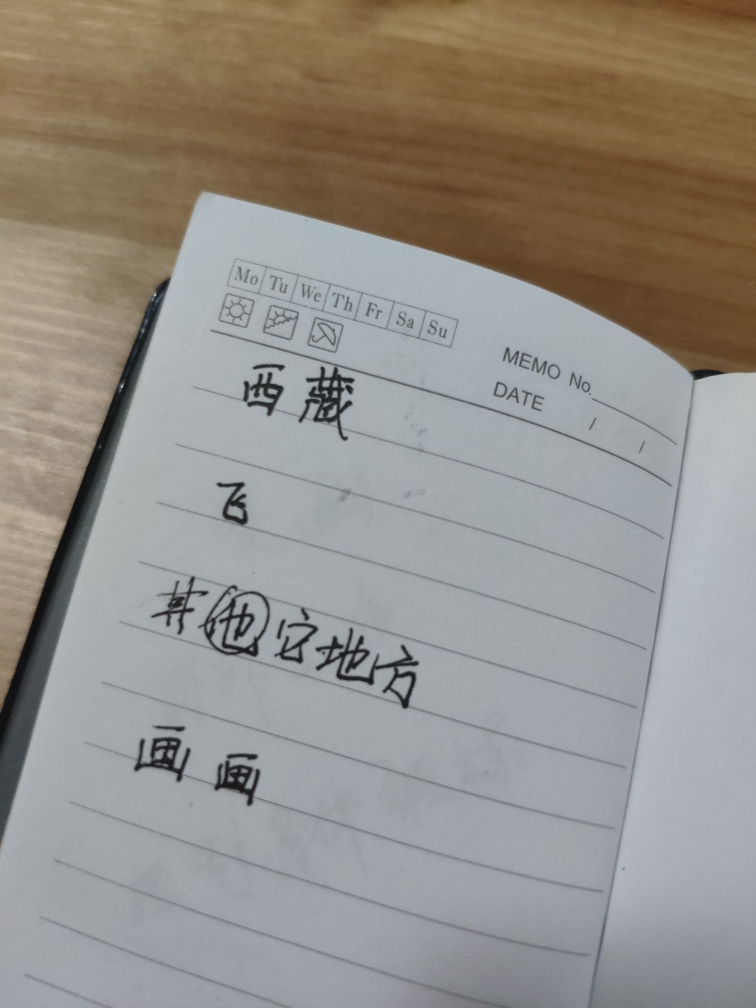 Mo Tu We Th Fr Sa Su
MEMO No.
DATE / /
西藏
飞
其他它地方
画画